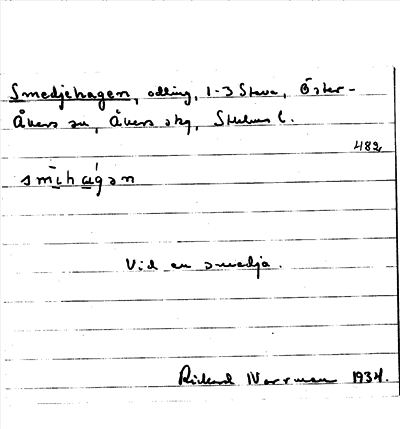 Smedjehagen, odling, 1-3 Stava, Öster-
Åkers sn, Åkers skg, Sthlms l.
482
smīhàgən
Vid en smedja.
Rickard Norrman 1934.